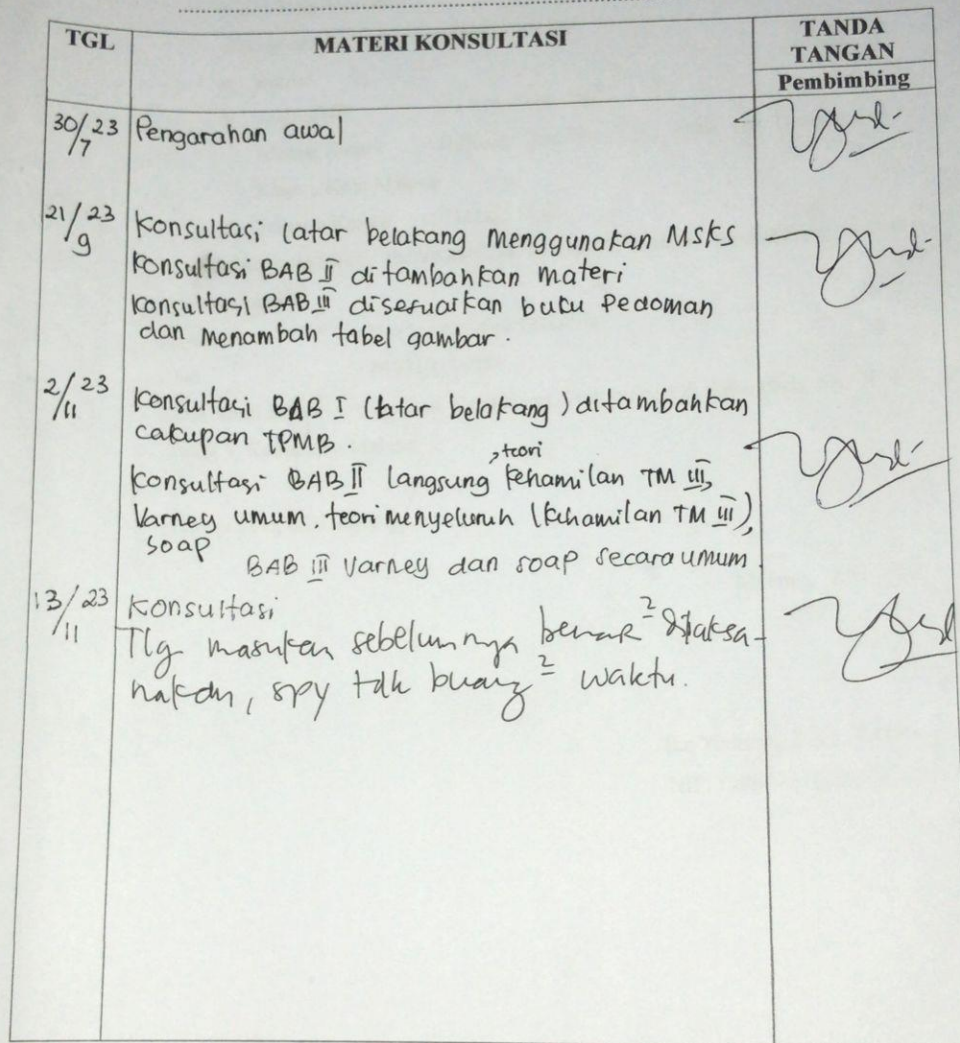 TGL MATERI KONSULTASI TANDA
TANGAN
Pembimbing
30/7 23 Pengarahan awal
21/9 23 Konsultasi latar belakang menggunakan MSKS
Konsultasi BAB II ditambahkan materi
Konsultasi BAB III disesuaikan buku Pedoman
dan menambah tabel gambar.
2/11 23 Konsultasi BAB I (latar belakang) ditambahkan
cakupan TPMB.
, teori
Konsultasi BAB II langsung kehamilan TM III,
Varney umum, teori menyeluruh (kehamilan TM III),
SOAP
BAB III Varney dan soap secara umum
13/11 23 Konsultasi
Tlg masukan sebelumnya benar² dilaksa-
nakan, spy tdk buang² waktu.